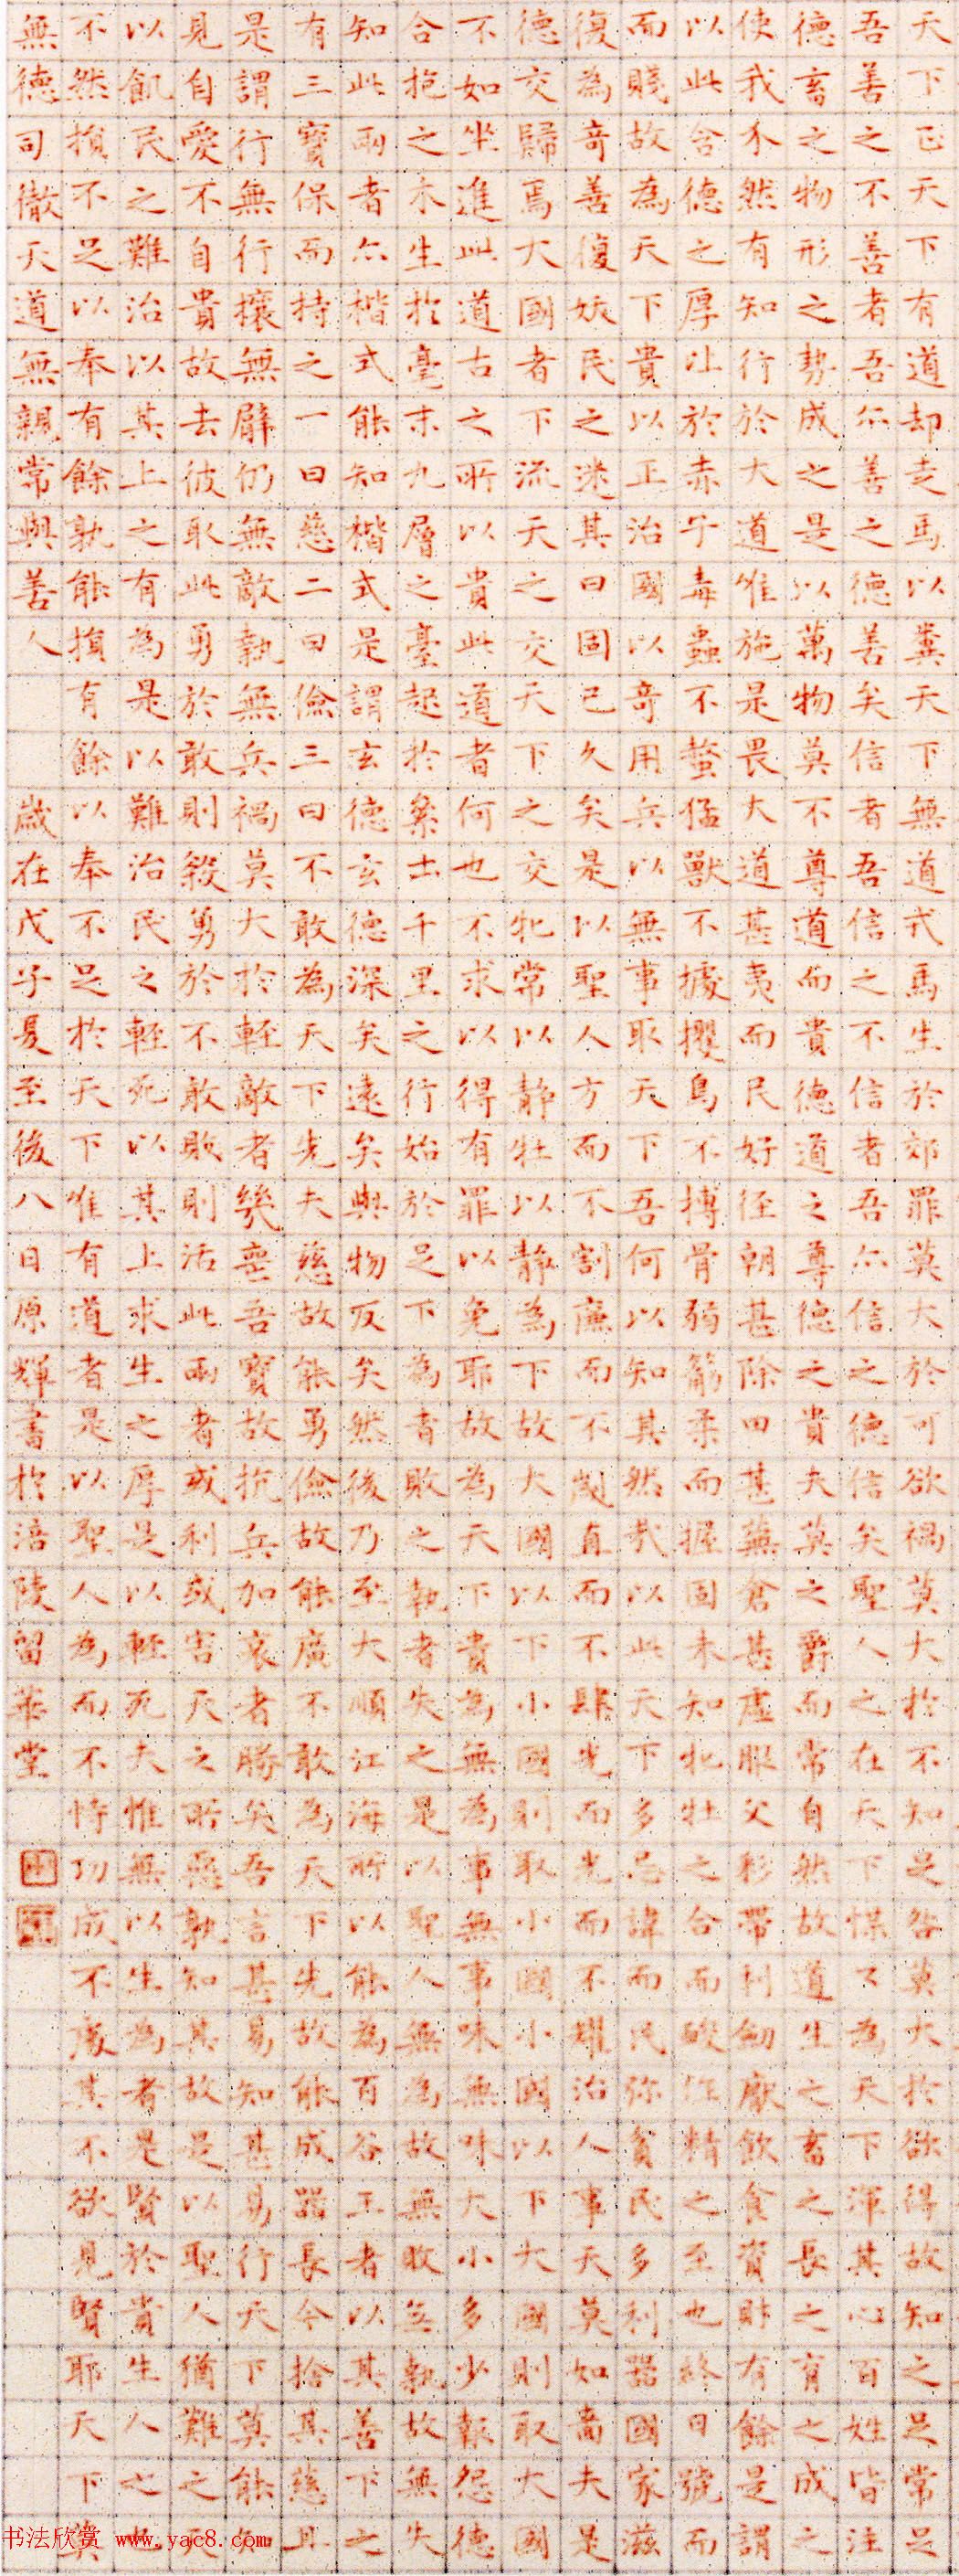 天下正天下有道却走馬以糞天下無道戎馬生於郊罪莫大於可欲禍莫大於不知足咎莫大於欲得故知之足常足
吾善之不善者吾亦善之德善矣信者吾信之不信者吾亦信之德信矣聖人之在天下惵々為天下渾其心百姓皆注
德畜之物形之勢成之是以萬物莫不尊道而貴德道之尊德之貴夫莫之爵而常自然故道生之畜之長之育之成之
使我介然有知行於大道唯施是畏大道甚夷而民好徑朝甚除田甚蕪倉甚虛服文彩帶利劍厭飲食資財有餘是謂
以此含德之厚比於赤子毒蟲不螫猛獸不據攫鳥不搏骨弱筋柔而握固未知牝牡之合而朘作精之至也終日號而
而賤故為天下貴以正治國以奇用兵以無事取天下吾何以知其然哉以此天下多忌諱而民弥貧民多利器國家滋
復為奇善復妖民之迷其日固已久矣是以聖人方而不割廉而不劌直而不肆光而光而不耀治人事天莫如嗇夫是
德交歸焉大國者下流天之交天下之交牝常以靜牡以靜為下故大國以下小國則取小國小國以下大國則取大國
不如坐進此道古之所以貴此道者何也不求以得有罪以免耶故為天下貴為無為事無事味無味大小多少報怨德
合抱之木生於毫末九層之臺起於絫土千里之行始於足下為者敗之執者失之是以聖人無為故無敗無執故無失
知此兩者亦楷式能知楷式是謂玄德玄德深矣遠矣與物反矣然後乃至大順江海所以能為百谷王者以其善下之
有三寶保而持之一曰慈二曰儉三曰不敢為天下先夫慈故能勇儉故能廣不敢為天下先故能成器長今捨其慈且
是謂行無行攘無臂仍無敵執無兵禍莫大於輕敵者幾喪吾寶故抗兵加哀者勝矣吾言甚易知甚易行天下莫能知
見自愛不自貴故去彼取此勇於敢則殺勇於不敢敗則活此兩者或利或害天之所惡孰知其故是以聖人猶難之天
以飢民之難治以其上之有為是以難治民之輕死以其上求生之厚是以輕死夫惟無以生為者是賢於貴生人之也
不然損不足以奉有餘孰能損有餘以奉不足於天下唯有道者是以聖人為而不恃功成不處其不欲見賢耶天下莫
無德司徹天道無親常與善人 歲在戊子夏至後八日原輝書於涪陵留華堂
书法欣赏 www.yac8.com